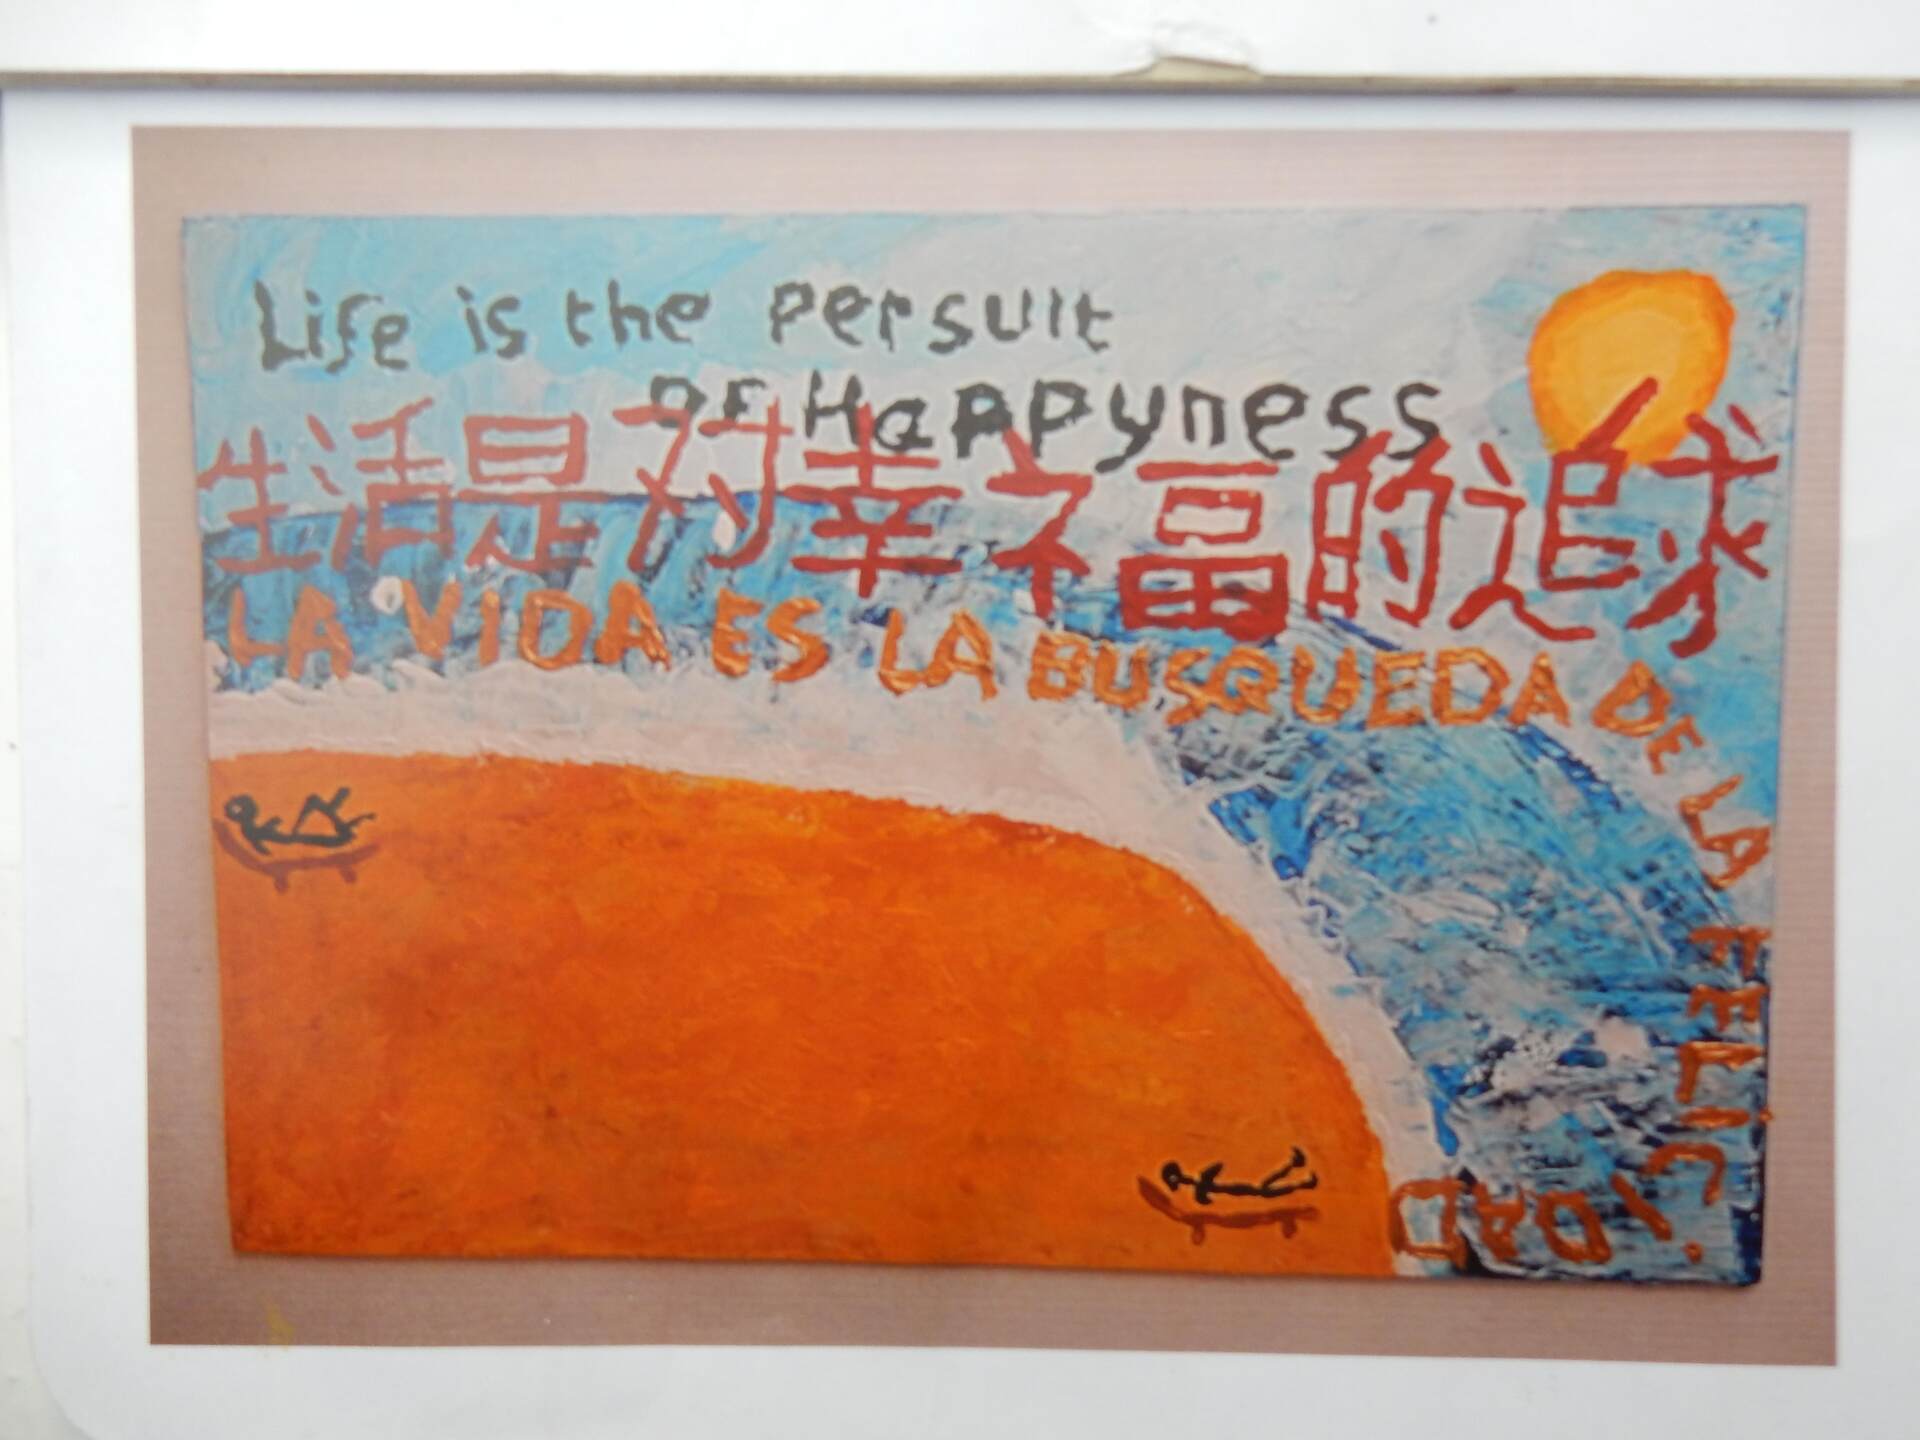 Life is the persuit
of Happyness
生活是对幸福的追求
LA VIDA ES LA BUSQUEDA DE LA FELICIDAD